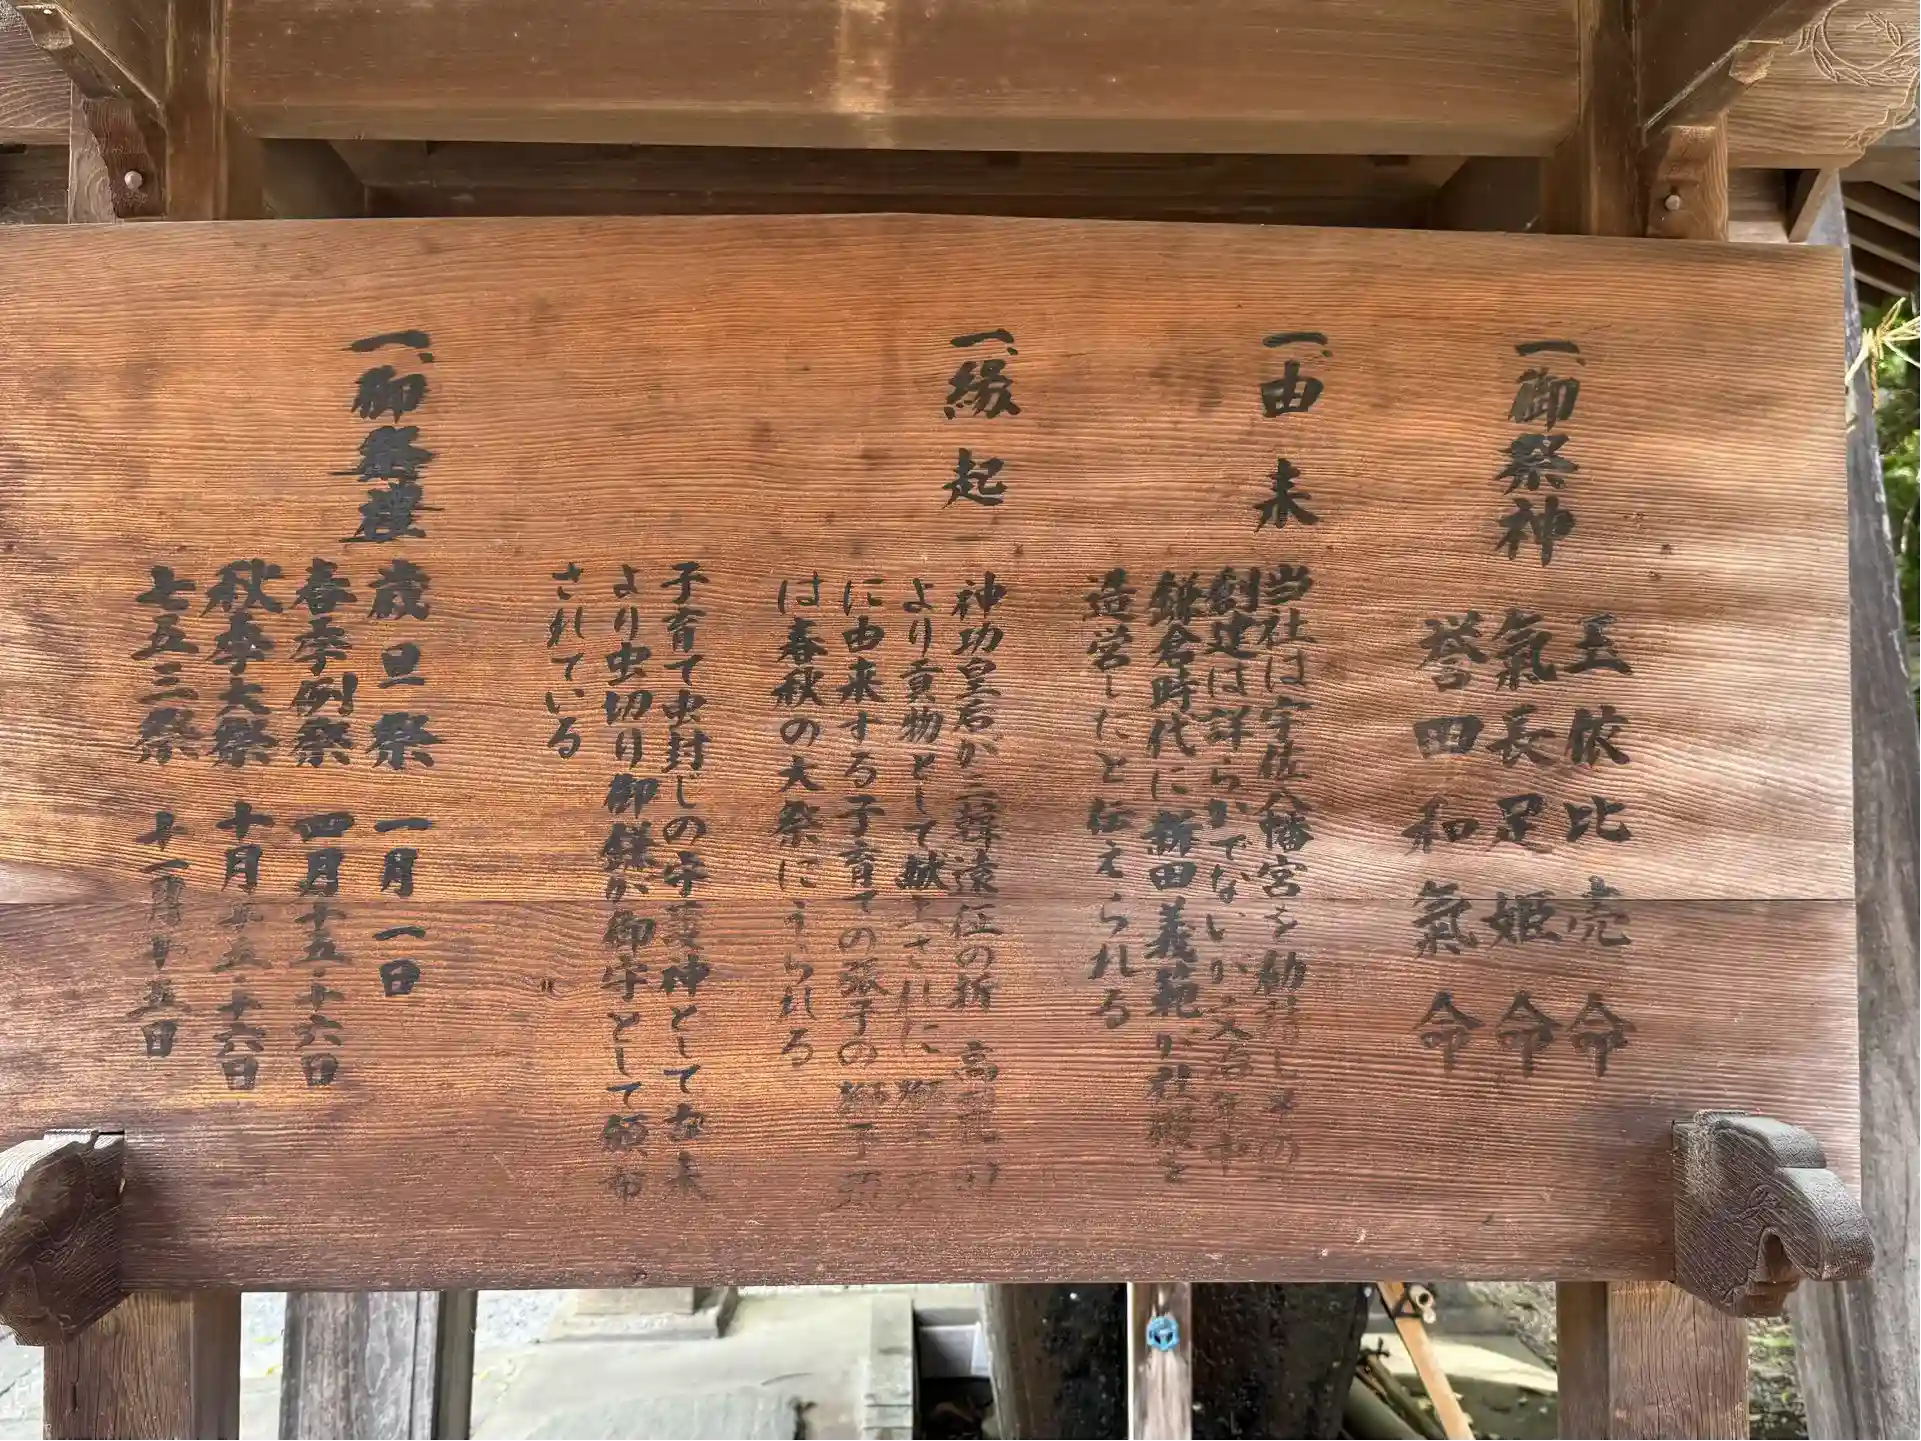 一、御祭神
玉依比売命
氣長足姫命
誉田和氣命
一、由来
当社は宇佐八幡宮を勧請しその
創建は詳らかでないが文治年中
鎌倉時代に新田義範が社殿を
造営したと伝えられる
一、縁起
神功皇后が三韓遠征の折 高麗の
より貢物として献上された獅子
に由来する子育ての張子の獅子頭
は春秋の大祭にうられる
子育て虫封じの守護神として古来
より虫切り御鎌が御守として頒布
されている
一、御祭禮
歳旦祭 一月一日
春季例祭 四月十五・十六日
秋季大祭 十月十五・十六日
七五三祭 十一月十五日